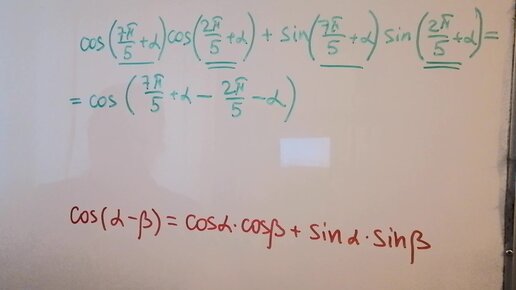 cos(7π/5+α)cos(2π/5+α)+sin(7π/5+α)sin(2π/5+α)=
=cos(7π/5+α-2π/5-α)
cos(α-β)=cosα·cosβ+sinα·sinβ